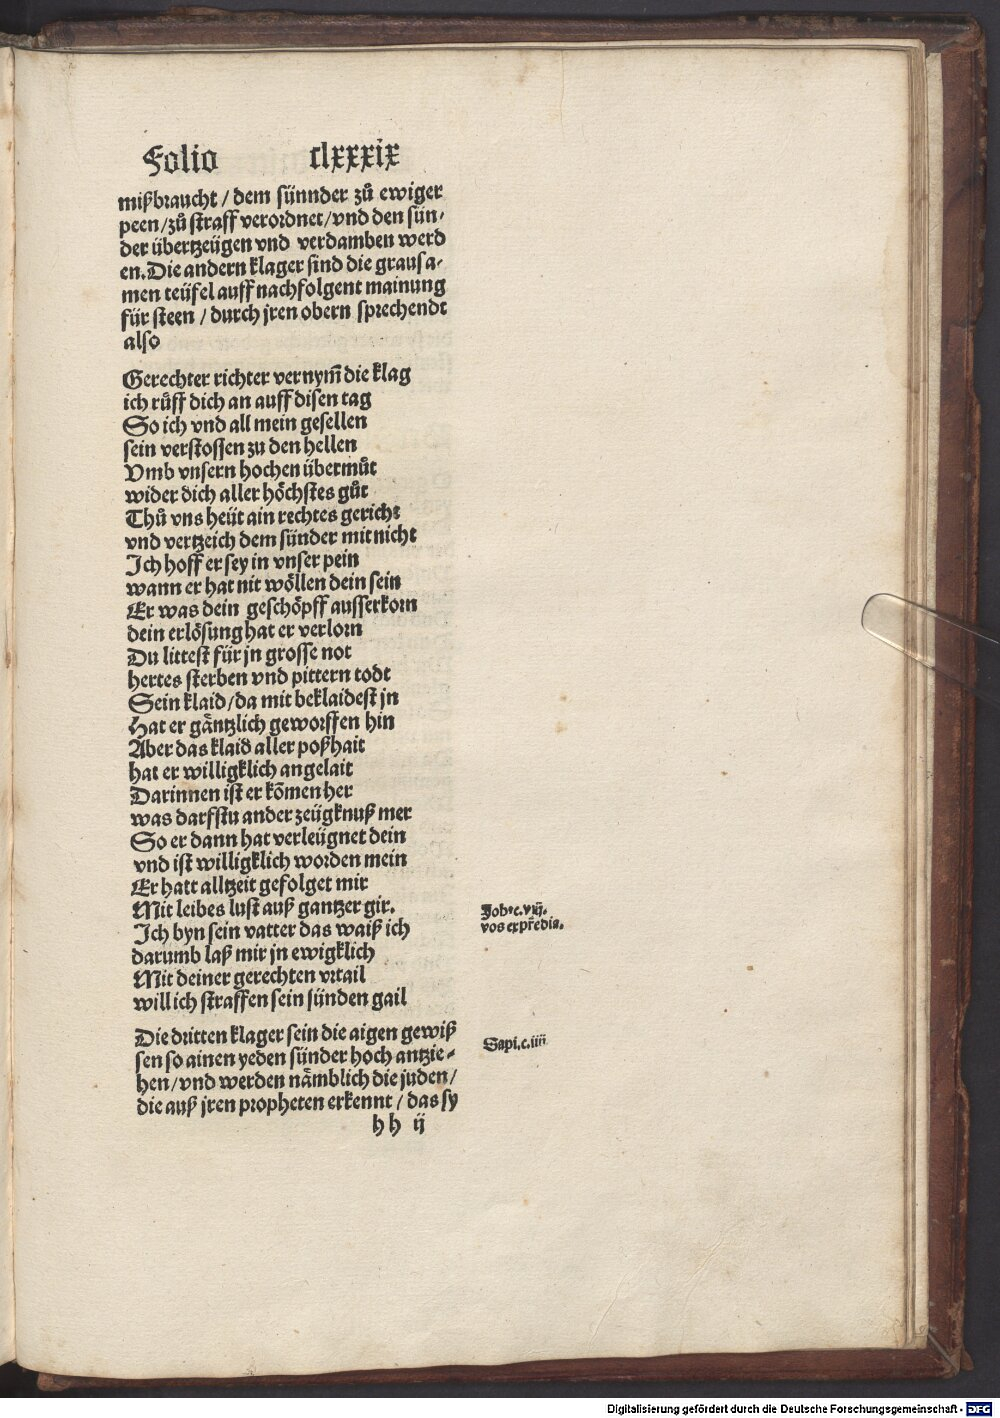 Folio clxxxix
mißbraucht / dem sünnder zů ewiger
peen / zů straff verordnet / vnd den sün-
der übertzeügen vnd verdamben werd
en. Die andern klager sind die grausa-
men teüfel auff nachfolgent mainung
für steen / durch jren obern sprechendt
also
Gerechter richter vernym̄ die klag
ich růff dich an auff disen tag
So ich vnd all mein gesellen
sein verstossen zu den hellen
Vmb vnsern hochen übermůt
wider dich aller höchstes gůt
Thů vns heüt ain rechtes gericht
vnd vertzeich dem sünder mit nicht
Ich hoff er sey in vnser pein
wann er hat nit wöllen dein sein
Er was dein geschöpff ausserkorn
dein erlösung hat er verlorn
Du littest für jn grosse not
hertes sterben vnd pittern todt
Sein klaid / da mit beklaidest jn
Hat er gäntzlich geworffen hin
Aber das klaid aller poßhait
hat er willigklich angelait
Darinnen ist er kōmen her
was darfstu ander zeügknuß mer
So er dann hat verleügnet dein
vnd ist willigklich worden mein
Er hatt alltzeit gefolget mir
Mit leibes lust auß gantzer gir.
Ich byn sein vatter das waiß ich
darumb laß mir jn ewigklich
Mit deiner gerechten vrtail
will ich straffen sein sünden gail
Die dritten klager sein die aigen gewiß
sen so ainen yeden sünder hoch antzie-
hen / vnd werden nämblich die juden /
die auß jren propheten erkennt / das sy
hh ij
Joh. c. viij.
vos ex pr̄e dia.
Sapi. c. iiij
Digitalisierung gefördert durch die Deutsche Forschungsgemeinschaft - DFG